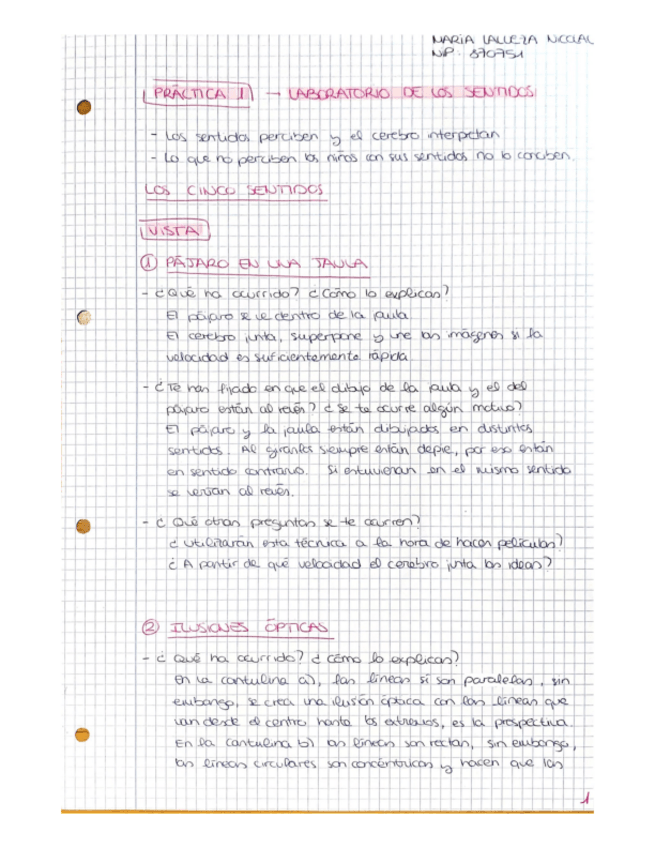 MARÍA LALLEZA NICOLAU
NIP: 870751
PRÁCTICA 1 → LABORATORIO DE LOS SENTIDOS
- Los sentidos perciben y el cerebro interpretan
- Lo que no perciben los niños con sus sentidos no lo conciben.
LOS CINCO SENTIDOS
VISTA
① PÁJARO EN UNA JAULA
- ¿Qué ha ocurrido? ¿Cómo lo explicas?
El pájaro se ve dentro de la jaula.
El cerebro junta, superpone y une las imágenes si la
velocidad es suficientemente rápida.
- ¿Te has fijado en que el dibujo de la jaula y el del
pájaro están al revés? ¿Se te ocurre algún motivo?
El pájaro y la jaula están dibujados en distintos
sentidos. Al girarlos siempre están de pie, por eso están
en sentido contrario. Si estuvieran en el mismo sentido
se verían al revés.
- ¿Qué otras preguntas se te ocurren?
¿Utilizarán esta técnica a la hora de hacer películas?
¿A partir de qué velocidad el cerebro junta las ideas?
② ILUSIONES ÓPTICAS
- ¿Qué ha ocurrido? ¿Cómo lo explicas?
En la cartulina a), las líneas sí son paralelas, sin
embargo, se crea una ilusión óptica con las líneas que
van desde el centro hasta los extremos, es la prospectiva.
En la cartulina b) las líneas son rectas, sin embargo,
las líneas circulares son concéntricas y hacen que las
1